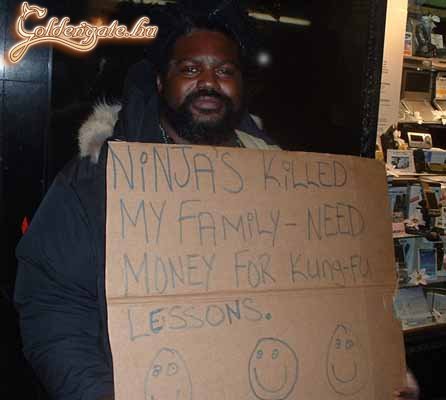 Goldengate.hu
NINJA'S KILLED
MY FAMILY - NEED
MONEY FOR KUNG-FU
LESSONS.